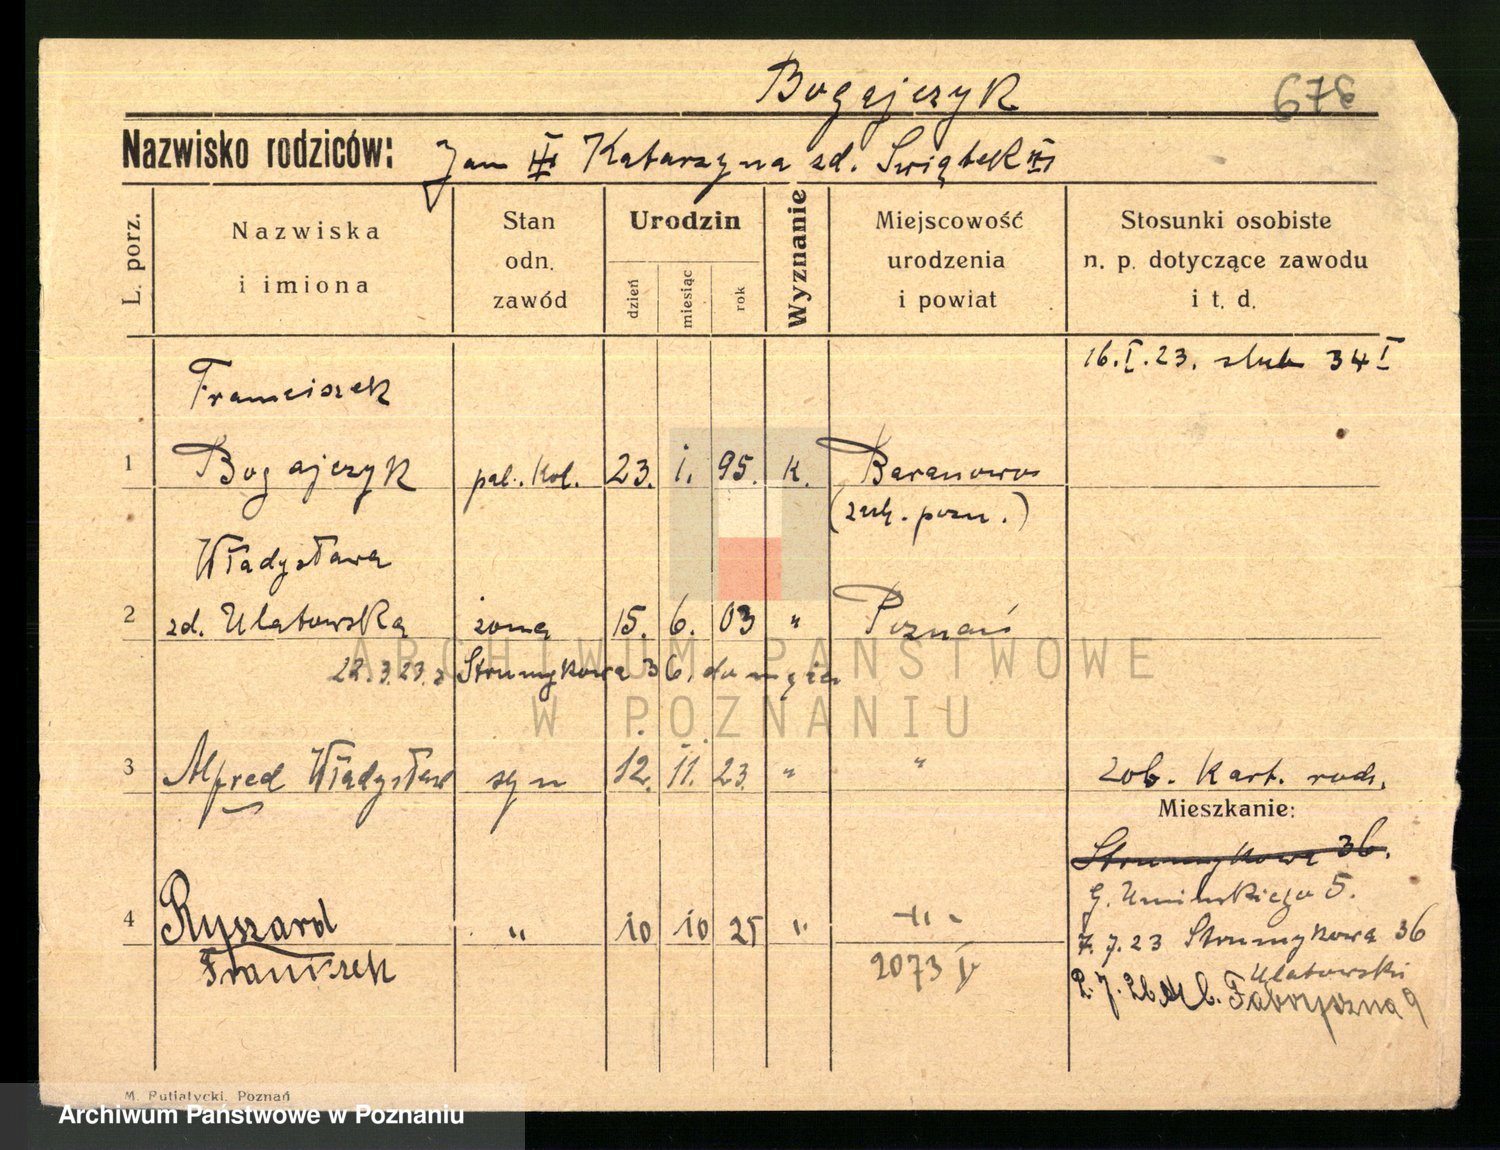 Bogajczyk 678
Nazwisko rodziców: Jan III Katarzyna zd. Swiątek III
L. porz.
Nazwiska i imiona
Stan odn. zawód
Urodzin
dzień miesiąc rok
Wyznanie
Miejscowość urodzenia i powiat
Stosunki osobiste n. p. dotyczące zawodu i t. d.
16.I.23. slub 34 I
Franciszek
1 Bogajczyk pal. kol. 23. i. 95. k. Baranowo
Władysława
2 zd. Ulatowska żona 15. 6. 03 " Poznań
22.3.23. z Strumykowa 36. do męża
3 Alfred Władysław syn 12. 11. 23. " " zob. Kart. rodz.
Mieszkanie:
Strumykowa 36.
G. Umińskiego 5.
4 Ryszard " 10 10 25 " -"-
7.7.23 Strumykowa 36
Franciszek 2073 I
Ulatowski
2.7.26 Fabryczna 9
M. Putiatycki, Poznań
ARCHIWUM PAŃSTWOWE
W POZNANIU
Archiwum Państwowe w Poznaniu